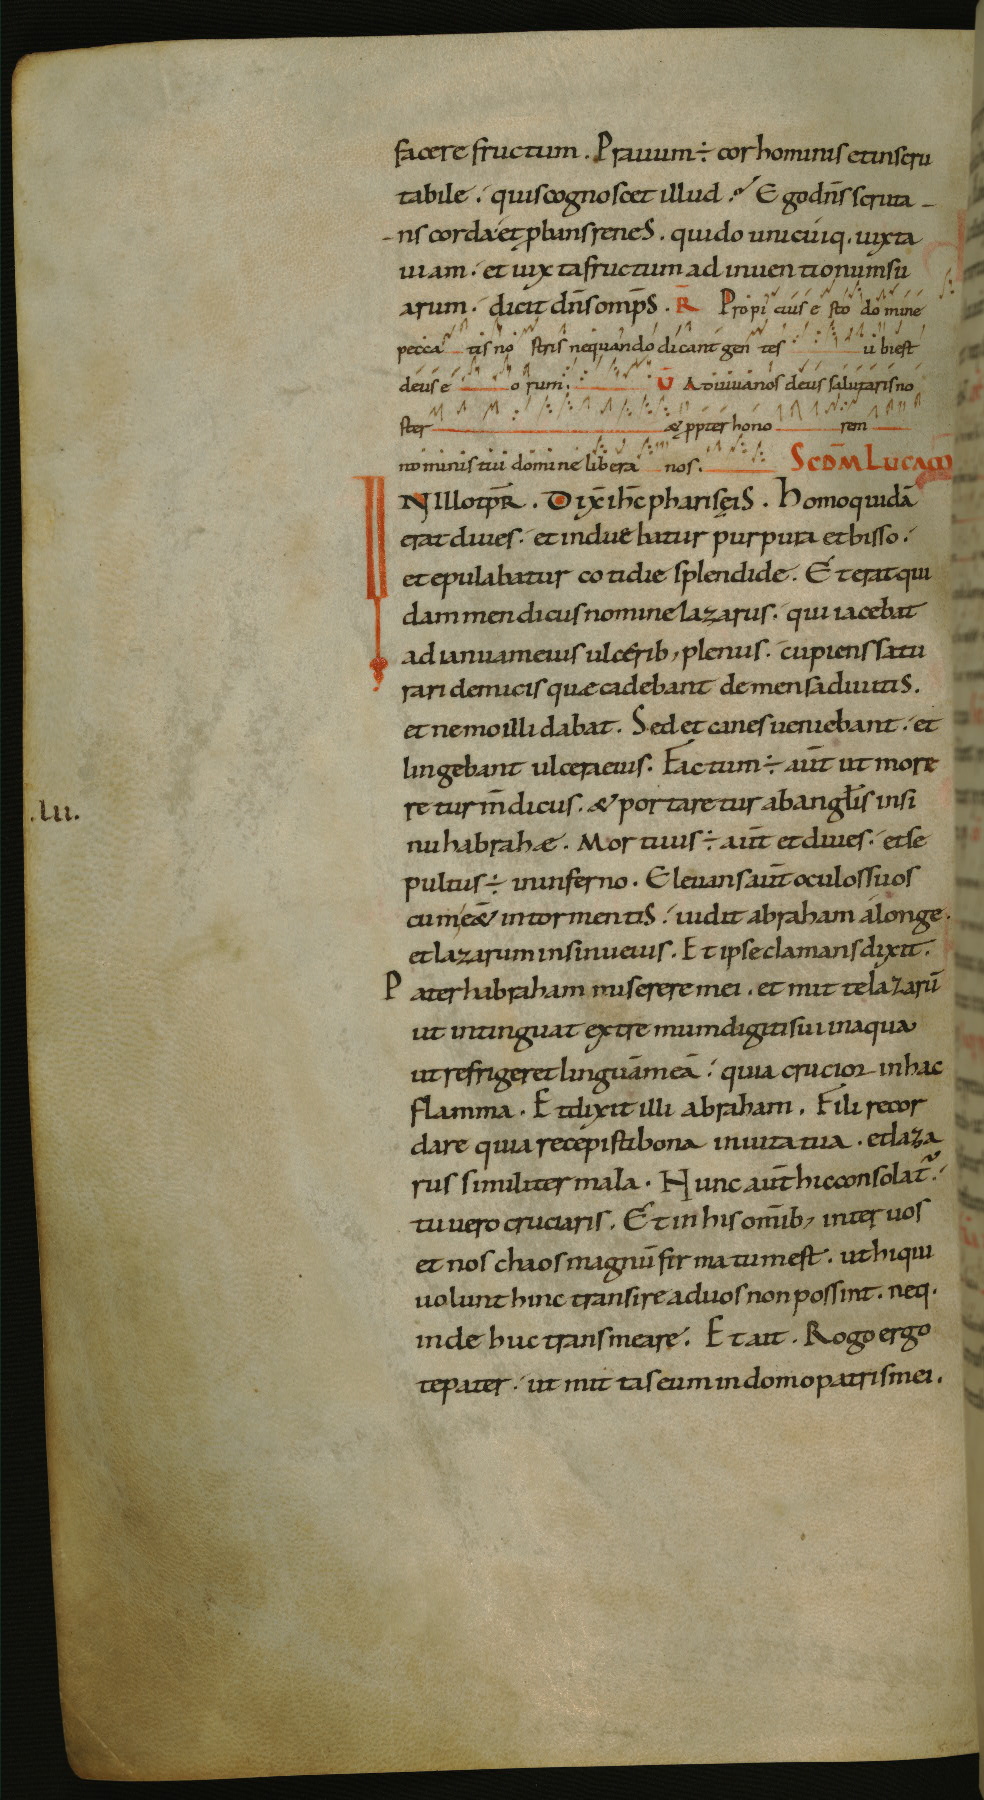 facere fructum. Prauum ÷ cor hominis et inscru
tabile. quis cognoscet illud. Ego dn̄s scruta
ns corda et ꝓbans renes. qui do unicuiq. iuxta
uiam. et iuxta fructum adinuentionum su
arum. dicit dn̄s omp̄s. R̄ Propicius esto domine
peccatis nostris nequando dicant gentes ubi est
deus eorum. V Adiuua nos deus salutaris no
ster & ꝓpter hono rem
nominis tui domine libera nos. Scdm̄ Lucam
IN illo tp̄r. Dix̄ ih̄c phariseis. Homo quidā
erat diues. et induebatur purpura et bisso.
et epulabatur cotidie splendide. Et erat qui
dam mendicus nomine lazarus. qui iacebat
ad ianuam eius ulcerib, plenus. cupiens satu
rari de micis quae cadebant de mensa diuitis.
et nemo illi dabat. Sed et canes ueniebant. et
lingebant ulcera eius. Factum ÷ aut̄ ut more
retur m̄dicus. & portaretur ab angłis insi
nu habrahæ. Mortuus ÷ aut̄ et diues. et se
pultus ÷ in inferno. Eleuans aut̄ oculos suos
cum e&̄ in tormentis. uidit abraham a longe.
et lazarum in sinu eius. Et ipse clamans dixit.
Pater habraham miserere mei. et mitte lazarū
ut intinguat extremum digiti sui in aqua
ut refrigeret linguā meā. quia crucior in hac
flamma. Et dixit illi abraham. Fili recor
dare quia recepisti bona in uita tua. et laza
rus similiter mala. Nunc aut̄ hic consolat̄.
tu uero cruciaris. Et in his om̄ib, inter uos
et nos chaos magnū firmatum est. ut hi qui
uolunt hinc transire ad uos non possint. neq.
inde huc transmeare. Et ait. Rogo ergo
te pater. ut mittas eum in domo patris mei.
.lii.